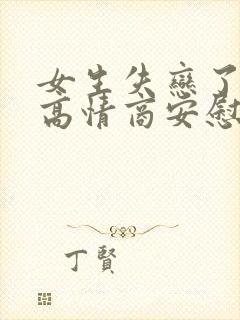 女生失戀了
高情商安慰
丁賢